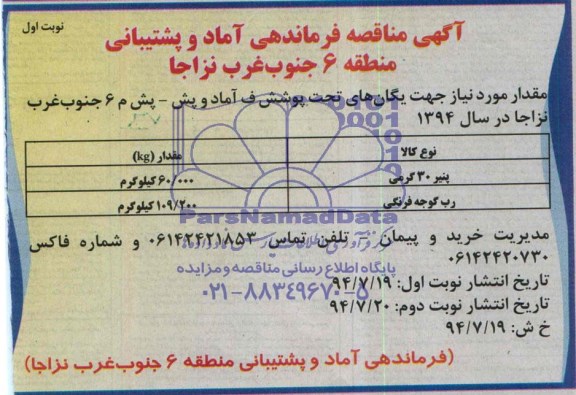 نوبت اول
آگهی مناقصه فرماندهی آماد و پشتیبانی
منطقه ۶ جنوب‌غرب نزاجا
مقدار مورد نیاز جهت یگان‌های تحت پوشش ف آماد و پش - پش م ۶ جنوب‌غرب
نزاجا در سال ۱۳۹۴
نوع کالا مقدار (kg)
پنیر ۳۰ گرمی ۶۰/۰۰۰ کیلوگرم
رب گوجه فرنگی ۱۰۹/۲۰۰ کیلوگرم
ParsNamadData
مدیریت خرید و پیمان - تلفن تماس ۰۶۱۴۲۴۲۱۸۵۳ و شماره فاکس
۰۶۱۴۲۴۲۰۷۳۰
پایگاه اطلاع رسانی مناقصه و مزایده
تاریخ انتشار نوبت اول: ۹۴/۷/۱۹
۰۲۱-۸۸۳۴۹۶۷۰-۵
تاریخ انتشار نوبت دوم: ۹۴/۷/۲۰
خ ش: ۹۴/۷/۱۹
(فرماندهی آماد و پشتیبانی منطقه ۶ جنوب‌غرب نزاجا)